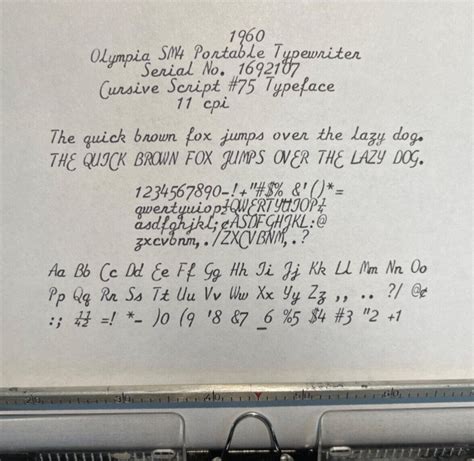 1960
Olympia SM4 Portable Typewriter
Serial No. 1692107
Cursive Script #75 Typeface
11 cpi
The quick brown fox jumps over the lazy dog.
THE QUICK BROWN FOX JUMPS OVER THE LAZY DOG.
1234567890-!+"#$% &'()*=
qwertyuiop½QWERTYUIOP¼
asdfghjkl;¢ASDFGHJKL:@
zxcvbnm,./ZXCVBNM,.?
Aa Bb Cc Dd Ee Ff Gg Hh Ii Jj Kk Ll Mm Nn Oo
Pp Qq Rr Ss Tt Uu Vv Ww Xx Yy Zz ,, .. ?/ @¢
:; ¼½ =! *- )0 (9 '8 &7 _6 %5 $4 #3 "2 +1